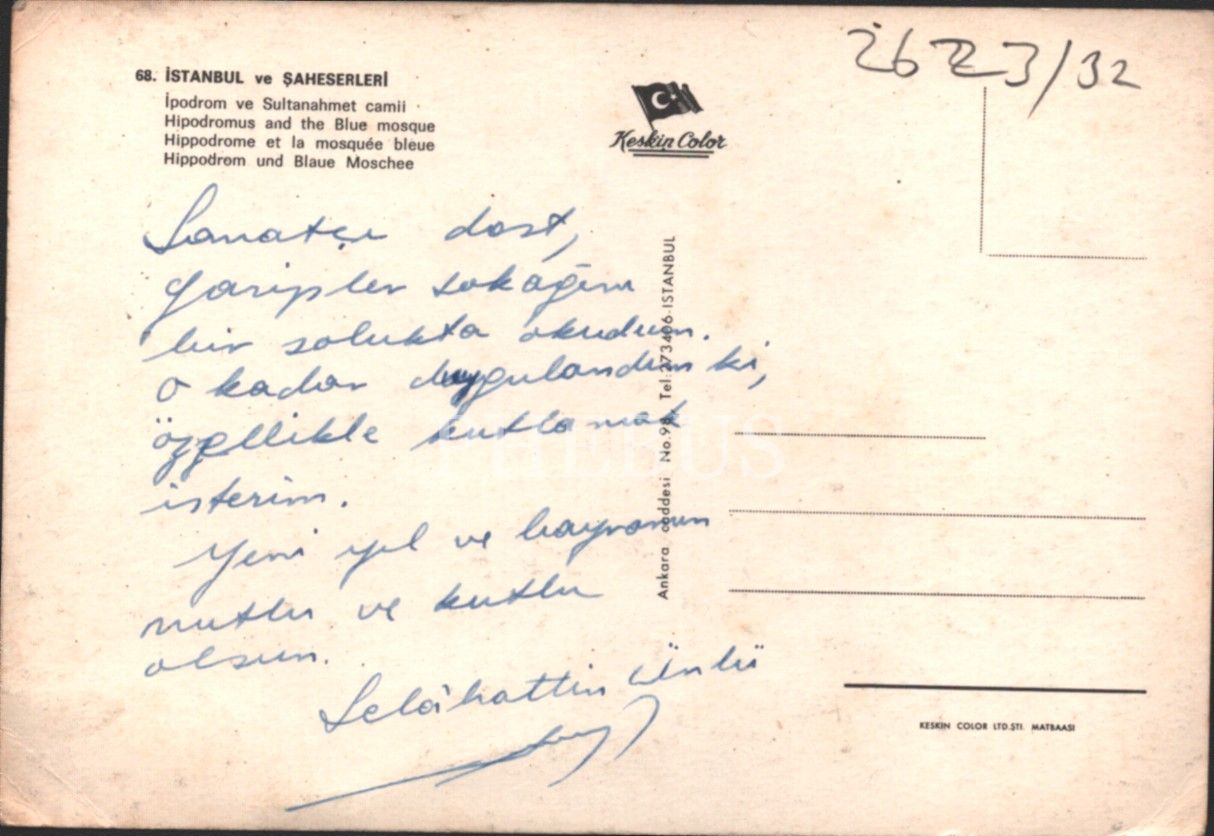 68. İSTANBUL ve ŞAHESERLERİ
İpodrom ve Sultanahmet camii
Hipodromus and the Blue mosque
Hippodrome et la mosquée bleue
Hippodrom und Blaue Moschee
Keskin Color
2623/32
Sanatçı dost,
Garipler sokağını
bir solukta okudum.
O kadar duygulandım ki,
özellikle kutlamak
isterim.
Yeni yıl ve bayramın
mutlu ve kutlu
olsun.
Selâhattin Ünlü
Ankara caddesi No.98 Tel:273406-ISTANBUL
KESKİN COLOR LTD.ŞTİ. MATBAASI
PHEBUS